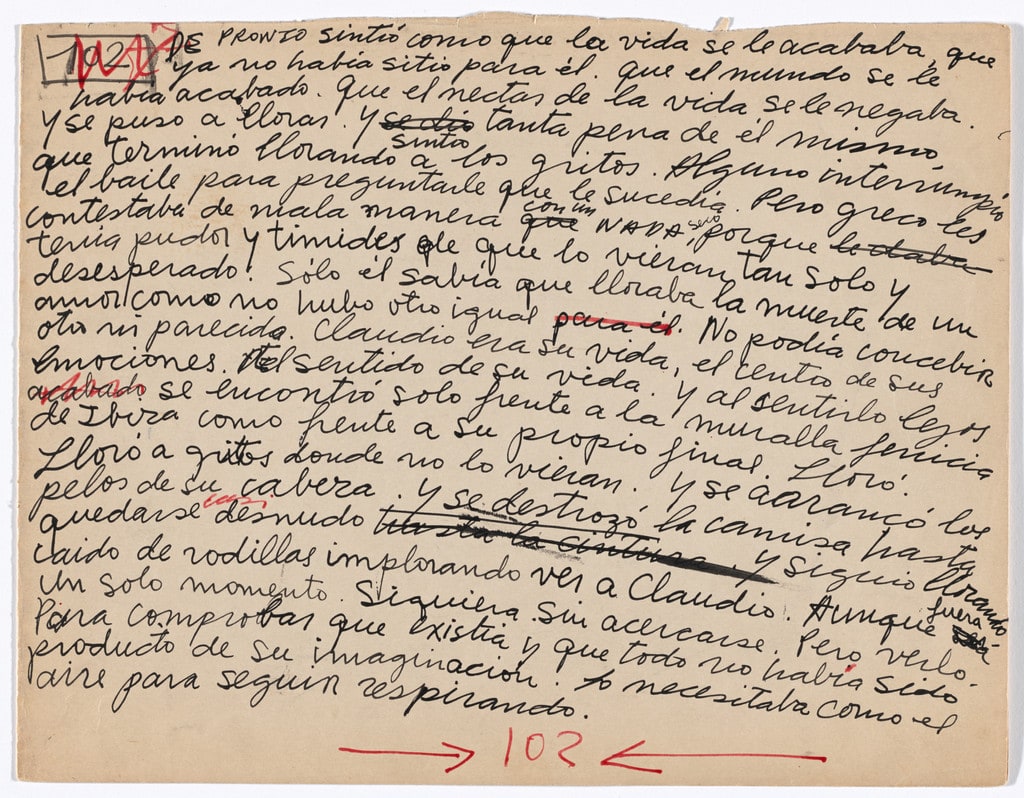 102
DE PRONTO sintió como que la vida se le acababa, que
ya no había sitio para él. Que el mundo se le
había acabado. Que el nectar de la vida se le negaba.
Y se puso a llorar. Y se dió sintió tanta pena de él mismo,
que terminó llorando a los gritos. Alguno interrumpió
el baile para preguntarle que le sucedía. Pero greco les
contestaba de mala manera que con un NADA seco, porque le daba
tenía pudor y timides de que lo vieran tan solo y
desesperado. Sólo él sabía que lloraba la muerte de un
amor como no hubo otro igual para él. No podía concebir
otro ni parecida. Claudio era su vida, el centro de sus
emociones. El sentido de su vida. Y al sentirlo lejos
acabado se encontró solo frente a la muralla fenicia
de Ibiza como frente a su propio final. Lloró.
Lloró a gritos donde no lo vieran. Y se aarancó los
pelos de su cabeza. Y se destrozó la camisa hasta
quedarse casi desnudo hasta la cintura. Y siguio llorando
caido de rodillas implorando ver a Claudio. Aunque fuera
un solo momento. Siquiera sin acercarse. Pero verlo.
Para comprobar que existía y que todo no había sido
producto de su imaginación. Lo necesitaba como el
aire para seguir respirando.
102